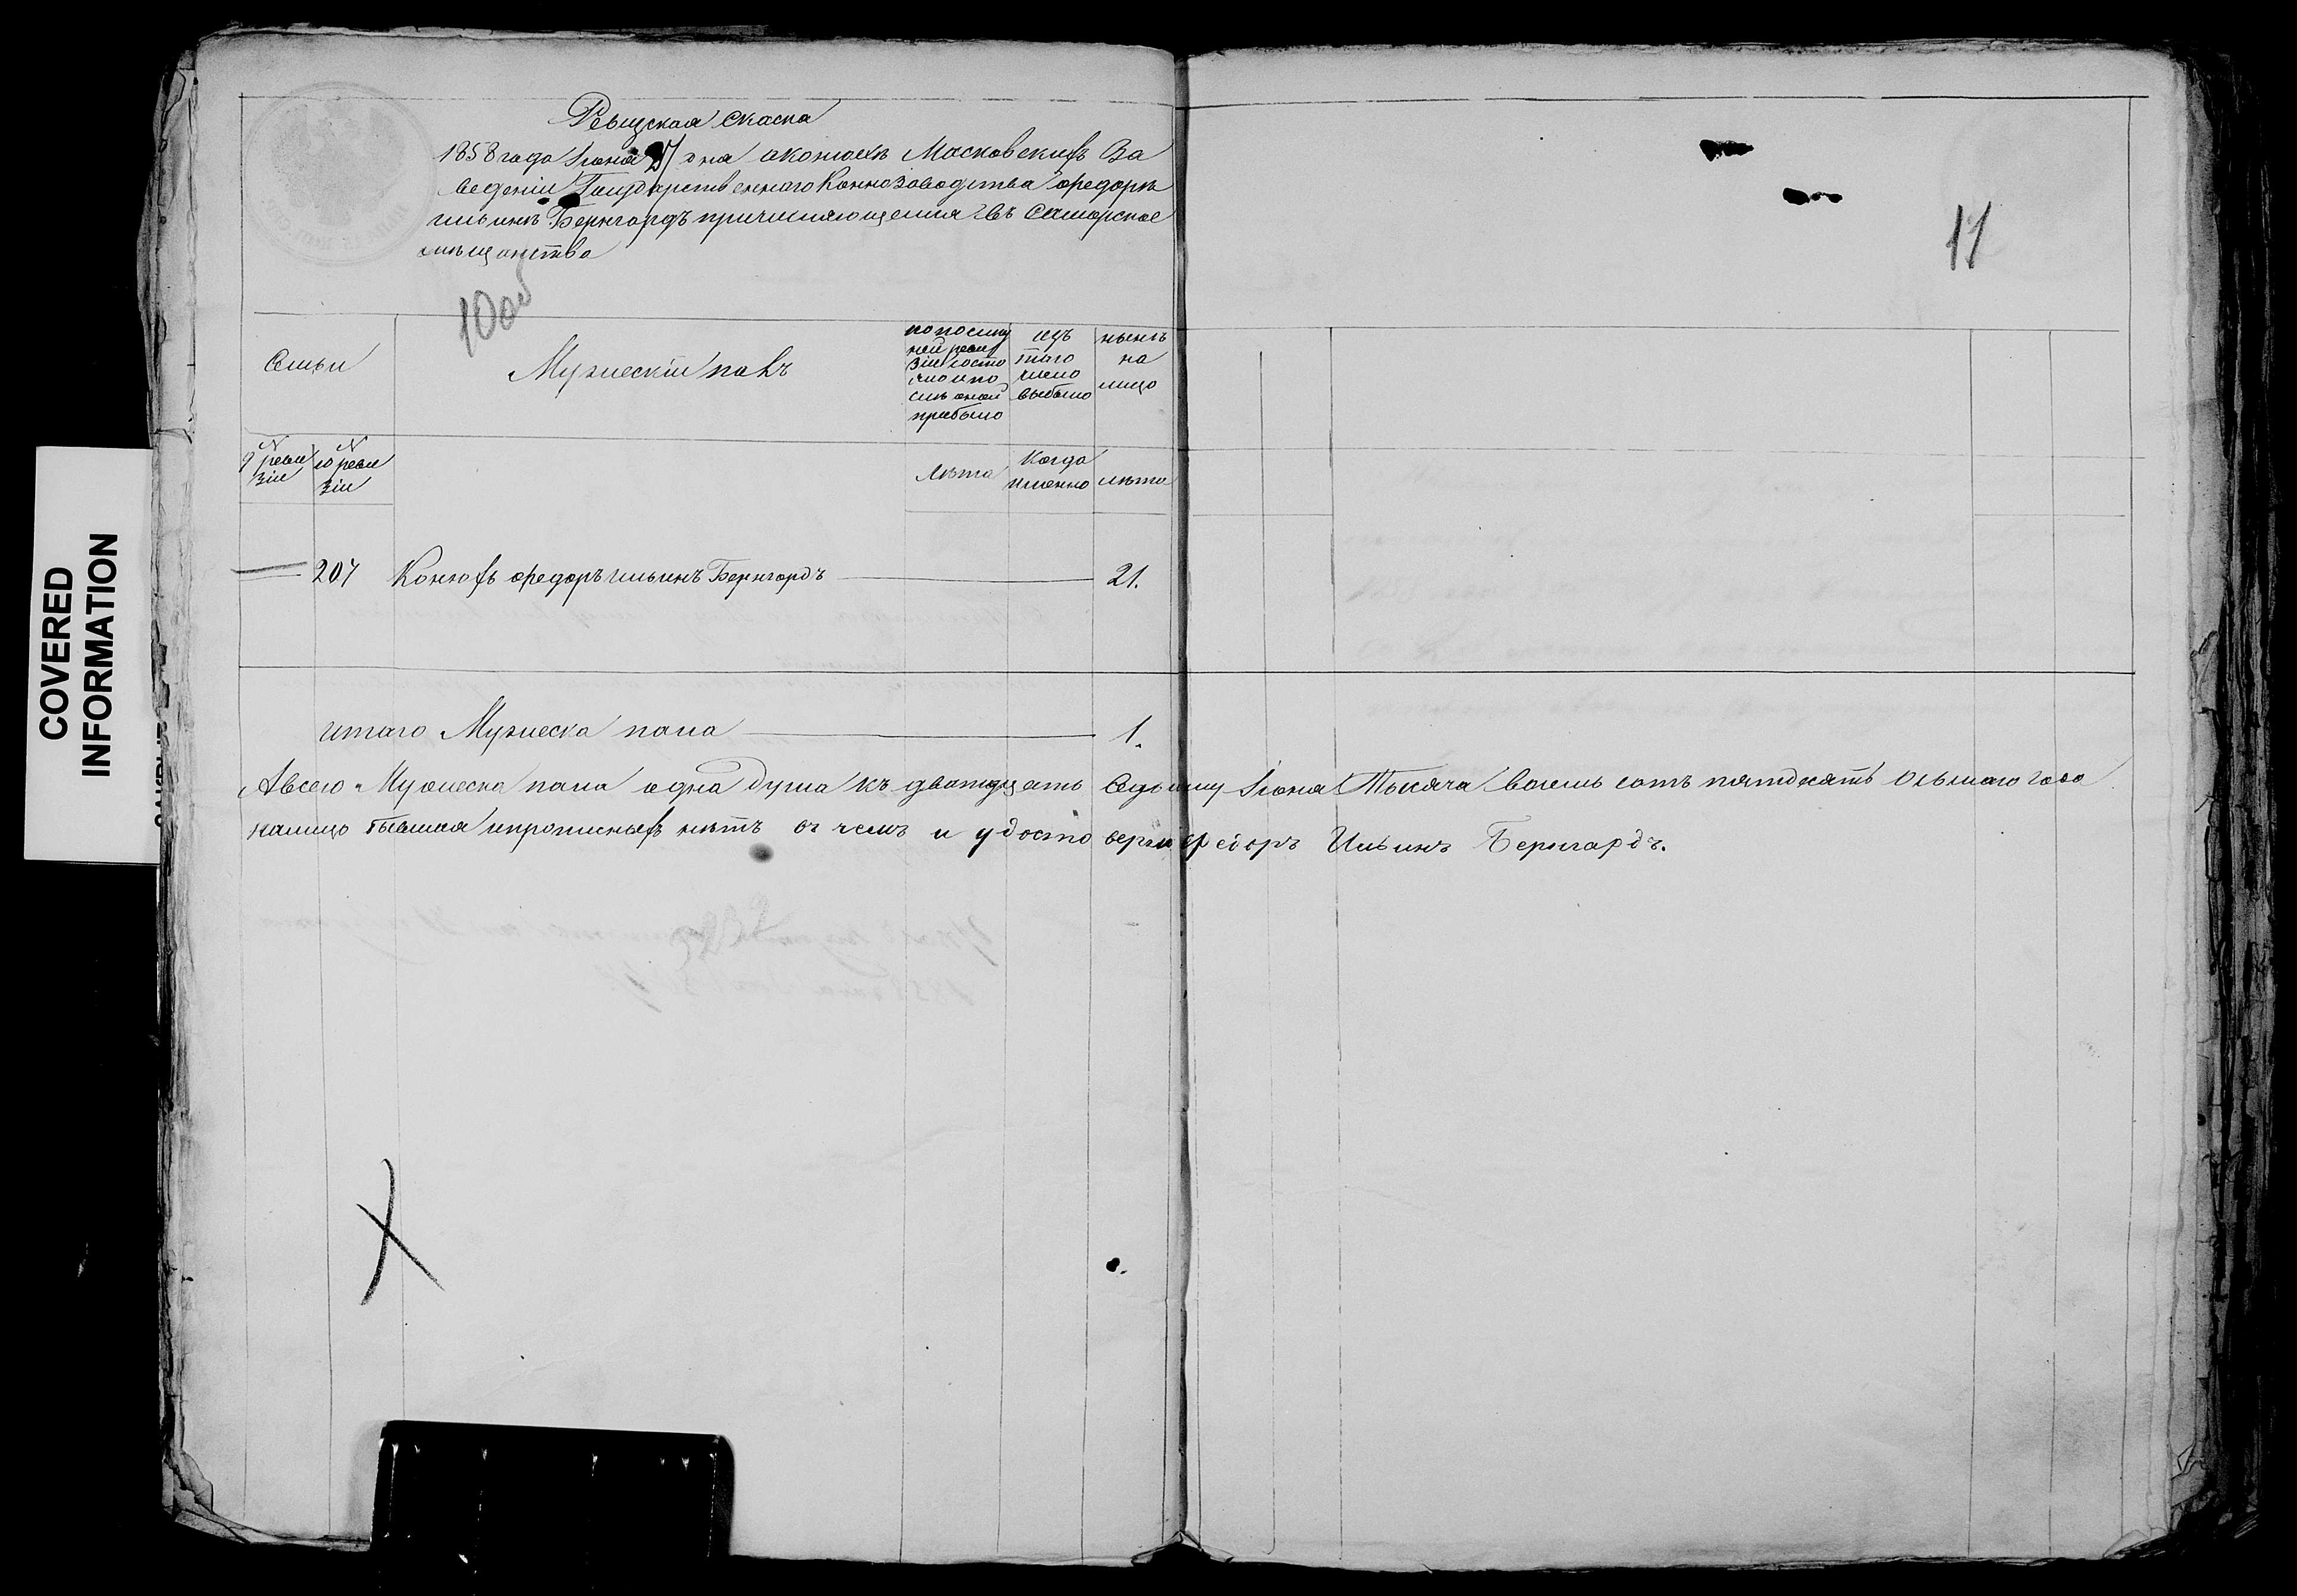 Ревизская скаска
1858 года Іюня 27 дня оконюхѣ Московскихъ За
веденіи Государственнаго Коннозаводства Федорѣ
ильинѣ Бернгардъ причисляющемся въ Самарское
мѣщанство
10об
11
Семьи
Мужескій полъ
попослед
ней реви
зіи состо
яло и по
слѣ оной
прибыло
изъ
того
числа
выбыло
нынѣ
на
лицо
№
9 реви
зіи
№
10 реви
зіи
лѣта
Когда
именно
лѣта
207 Конюхъ Федоръ ильинъ Бернгардъ 21.
итого Мужеска пола 1.
Авсего Мужеска пола одна душа къ дватдцать Седьмму Іюня Тысяча восемь сотъ пятдесятъ Осьмаго года
налицо бывшая ипрописныхъ нѣтъ въ чемъ и удостоверяю Федоръ Ильинъ Бернгардъ.
COVERED
INFORMATION